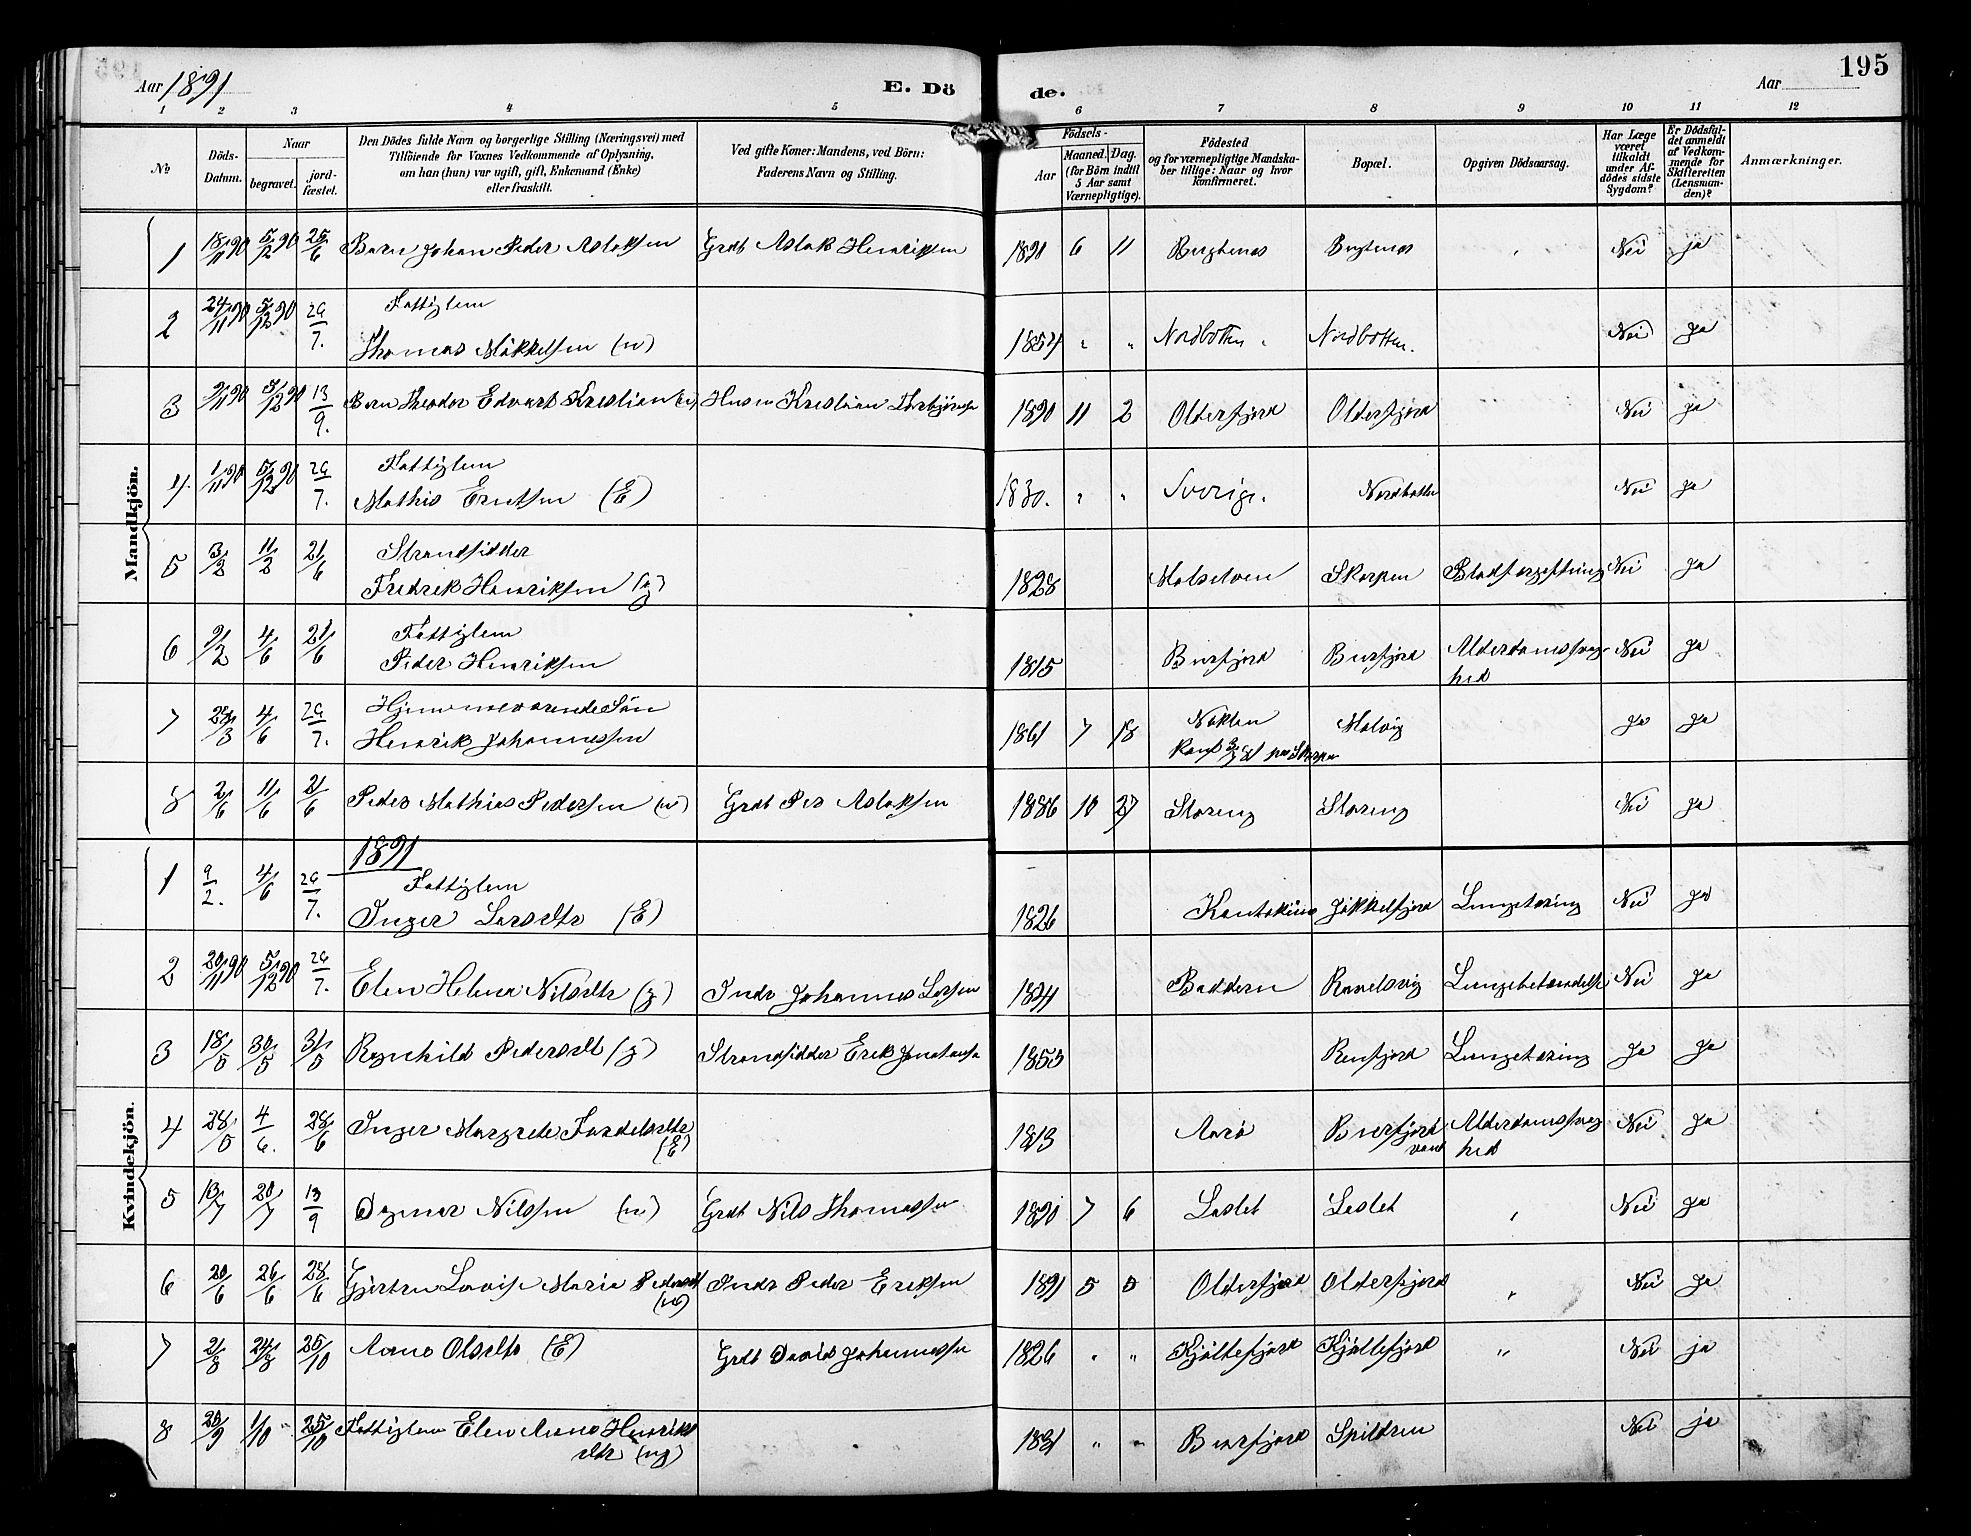 Aar 1891
E. Dö
de.
Aar
195
1 2 3 4 5 6 7 8 9 10 11 12
No
Döds-Datum.
Naar
begravet.
jord-fæstet.
Den Dödes fulde Navn og borgerlige Stilling (Næringsvei) med
Tilföiende for Voxnes Vedkommende af Oplysning,
om han (hun) var ugift, gift, Enkemand (Enke)
eller fraskilt.
Ved gifte Koner: Mandens, ved Börn:
Faderens Navn og Stilling.
Födsels-
Aar
Maaned. Dag.
(for Börn indtil
5 Aar samt
Værnepligtige).
Födested
og for værnepligtige Mandska-
ber tillige: Naar og hvor
konfirmeret.
Bopæl.
Opgiven Dödsaarsag.
Har Læge
været
tilkaldt
under Af-
dödes sidste
Sygdom?
Er Dödsfal-
det anmeldt
af Vedkom-
mende for
Skifteretten
(Lensman-
den)?
Anmærkninger.
Mandkjön.
1 18/11 90 5/12 90 25/6 Barn Johan Peder Aslaksen Grdb Aslak Henriksen 1890 6 11 Nei ja
2 24/11 90 5/12 90 29/7. Fattiglem
Thomas Mikkelsen (u) 1854 " " Nordbotten Nordbotten. Nei Ja
3 5/12 90 13/9. Barn Theodor Edvart Kristian Husm Kristian 1890 11 2 Olderfjord Olderfjord Nei Ja
4. 1/11 90 5/12 90 29/7. Fattiglem
Mathis (E) 1830. " " Sverige. Nordbotten Nei Ja
5 3/2 11/2 21/6 Strandsidder
Fredrik Henriksen (g) 1828 Skarpen Nei Ja
6 9/2 4/6 21/6 Fattiglem
Peder Henriksen 1815 Burfjord Burfjord Alderdomssvag-
hed Nei Ja
7 4/6 29/7. Hjemmeværende Sön
Henrik Johannessen 1861 7 18 Ja Ja
8 2/6 11/6 21/6 Peder Mathias Pedersen (u) Grdb Per Aslaksen 1886 10 27 Storeng Storeng Nei Ja
Kvindekjön.
1891
1 9/2. 4/6 29/7. Fattiglem
Inger Larsdtr (E) 1826 Kautokeino Jökkelfjord Lungetæring Nei Ja
2 20/11 90 5/12 90 29/7. Elen Helena Nilsdtr (g) Inds Johannes Larsen 1824 Baddern Lungebetændelse Nei Ja
3 18/5 30/5 31/5 Ragnhild Pedersdt (g) Strandsidder Erik 1853 Lungetæring Ja Ja
4 28/5 4/6. 28/6 Inger Margrete
(E) 1813 Aarö Burfjord
vand Alderdomssvag
hed Nei Ja
5 13/7 20/7 13/9 Dagmar Nilssen (u) Grdb Nils Thomassen 1890 7 6 Laslet Laslet Nei Ja
6 20/6 26/6 28/6 Gjertru Lovise Marie Pedersdt
(u) Inds Peder Eriksen 1891 5 5 Olderfjord Olderfjord Nei Ja
7 2/8 24/8 25/10 Anne Olsdtr (E) Grdb David Johannessen 1826 " " Kjöllefjord Kjöllefjord " Nei ja
8 25/9 1/10 25/10 Fattiglem Elen Anna Henriks
dtr (ug) 1831 " " Burfjord Spildren Nei ja